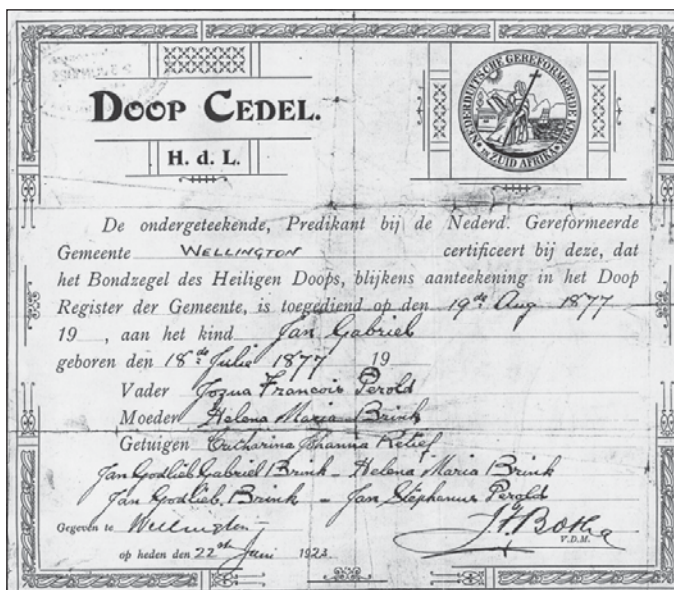 DOOP CEDEL.
H. d. L.
NEDERDUITSCHE GEREFORMEERDE KERK
IN ZUID AFRIKA
De ondergeteekende, Predikant bij de Nederd. Gereformeerde
Gemeente WELLINGTON certificeert bij deze, dat
het Bondzegel des Heiligen Doops, blijkens aanteekening in het Doop
Register der Gemeente, is toegediend op den 19de Aug 1877
19 , aan het kind Jan Gabriel
geboren den 18de Julie 1877 19
Vader Jozua Francois Perold
Moeder Helena Maria Brink
Getuigen Catharina Johanna Retief
Jan Godlieb Gabriel Brink - Helena Maria Brink
Jan Godlieb. Brink - Jan Stephanus Perold
Gegeven te Wellington
op heden den 22st Juni 1924
Botha
V.D.M.